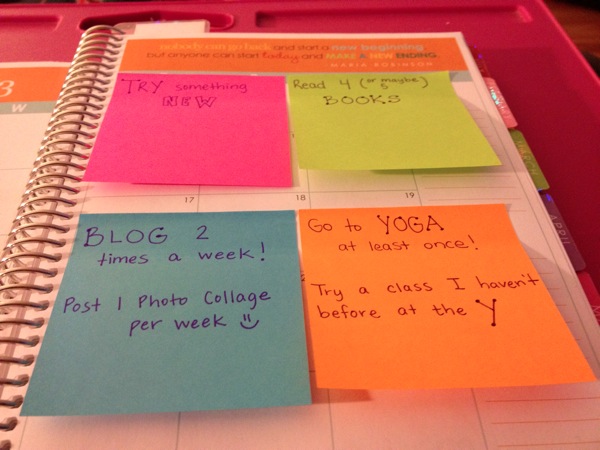 nobody can go back and start a new beginning
but anyone can start today and MAKE A NEW ENDING.
MARIA ROBINSON
3
W
TRY something
NEW
Read 4 (or maybe 5)
BOOKS
17
18
19
BLOG 2
times a week!
Post 1 Photo Collage
per week
Go to YOGA
at least once!
Try a class I haven't
before at the Y
APRIL